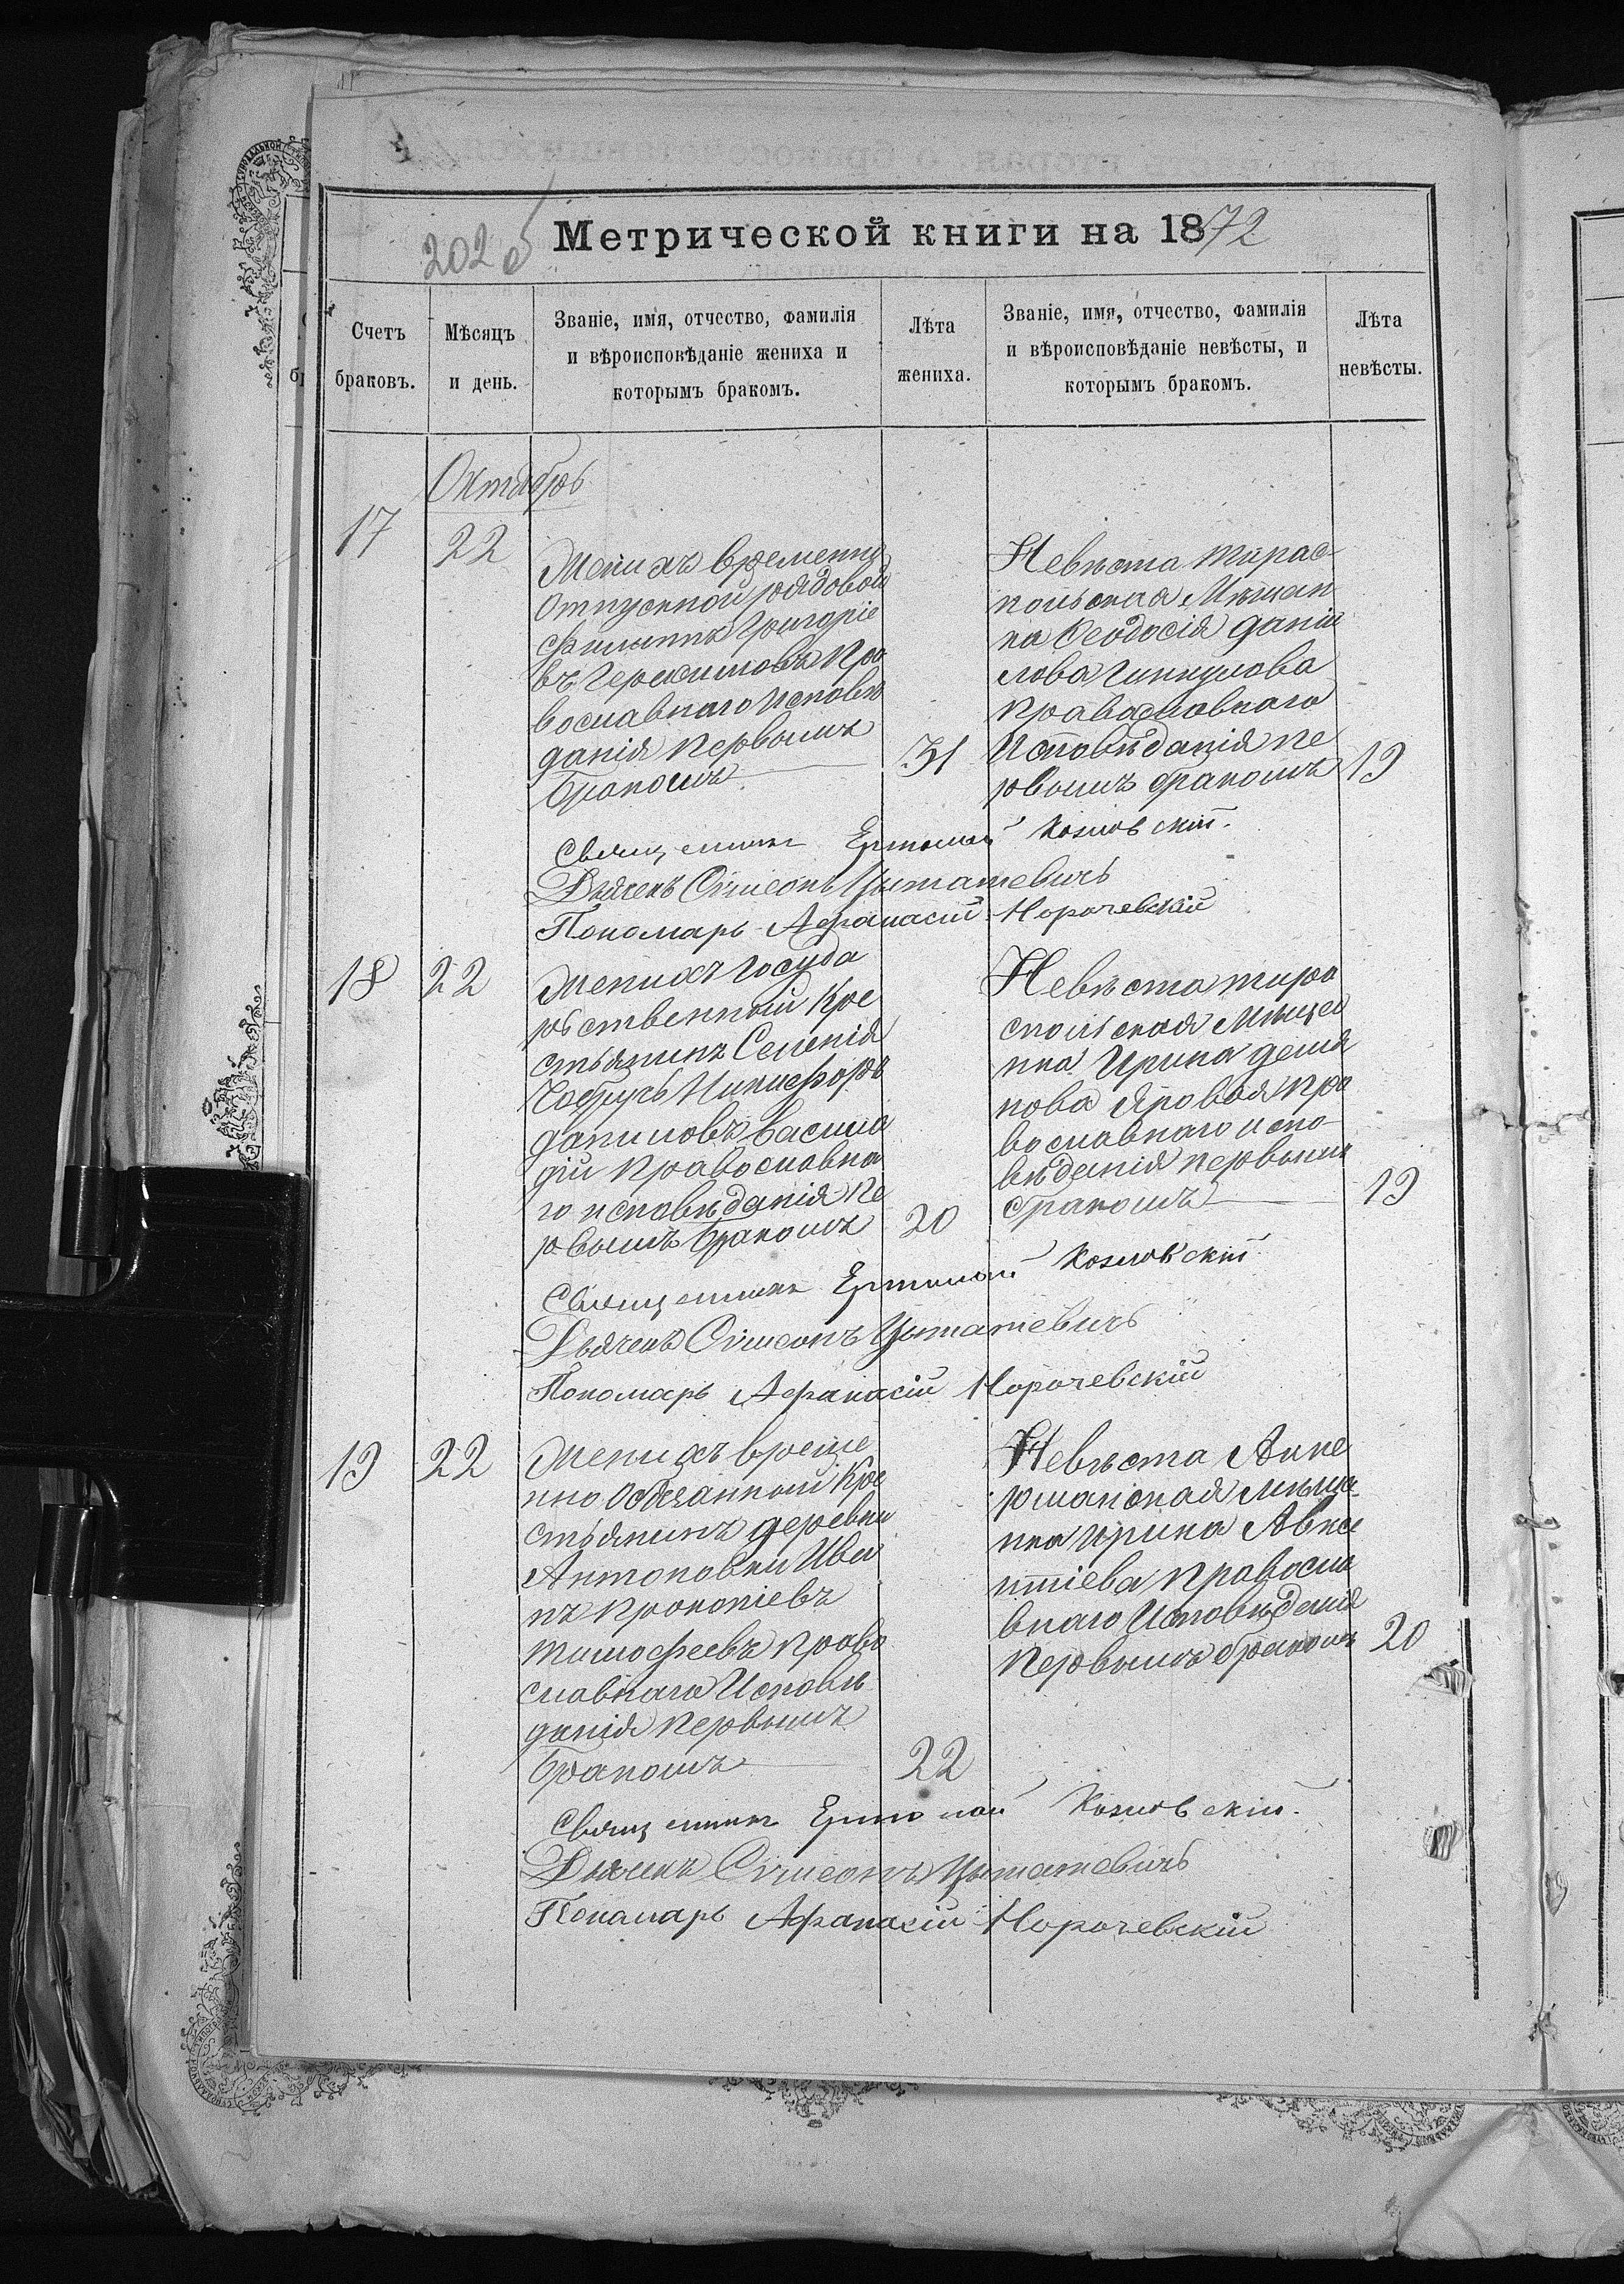 202 об
Метрической книги на 1872
Счетъ браковъ.
Мѣсяцъ и день.
Званіе, имя, отчество, фамилія и вѣроисповѣданіе жениха и которымъ бракомъ.
Лѣта жениха.
Званіе, имя, отчество, фамилія и вѣроисповѣданіе невѣсты, и которымъ бракомъ.
Лѣта невѣсты.
Октябрь
17
22
Женихъ временно
Отпускной рядовой
Филиппъ Григоріе
въ Герасимовъ Пра
вославнаго Исповѣ
данія Первымъ
бракомъ
31
Невѣста Тирас
польская Мѣщан
ка Феодосія Даніи
лова
Православнаго
Исповѣданія пе
рвымъ бракомъ
19
Священникъ Ермолай Козловскій.
Дьячекъ Симеонъ Цытатевичъ
Пономарь Афанасій Корочевскій
18
22
Женихъ Госуда
рственный Кре
стьянинъ Селенія
Чобручъ Никифоръ
Даниловъ Васила
тій Православна
го исповѣданія Пе
рвымъ бракомъ
20
Невѣста тира
спольская Мѣща
нка Ирина Демья
нова Яровая Пра
вославнаго испо
вѣданія первымъ
бракомъ
19
Священникъ Ермолай Козловскій
Дьячекъ Симеонъ Цытатевичъ
Пономарь Афанасій Корочевскій
19
22
Женихъ време
нно Обязанный Кре
стьянинъ деревни
Антоновки Ива
нъ Прокопіевъ
Тимофеевъ Право
славнаго Исповѣ
данія Первымъ
бракомъ
22
Невѣста Акке
рманская мѣща
нка Ирина Авксе
нтіева Правосла
внаго Исповѣданія
Первымъ бракомъ
20
Священникъ Ермолай Козловскій.
Дьячекъ Симеонъ Цытатевичъ
Пономарь Афанасій Корочевскій